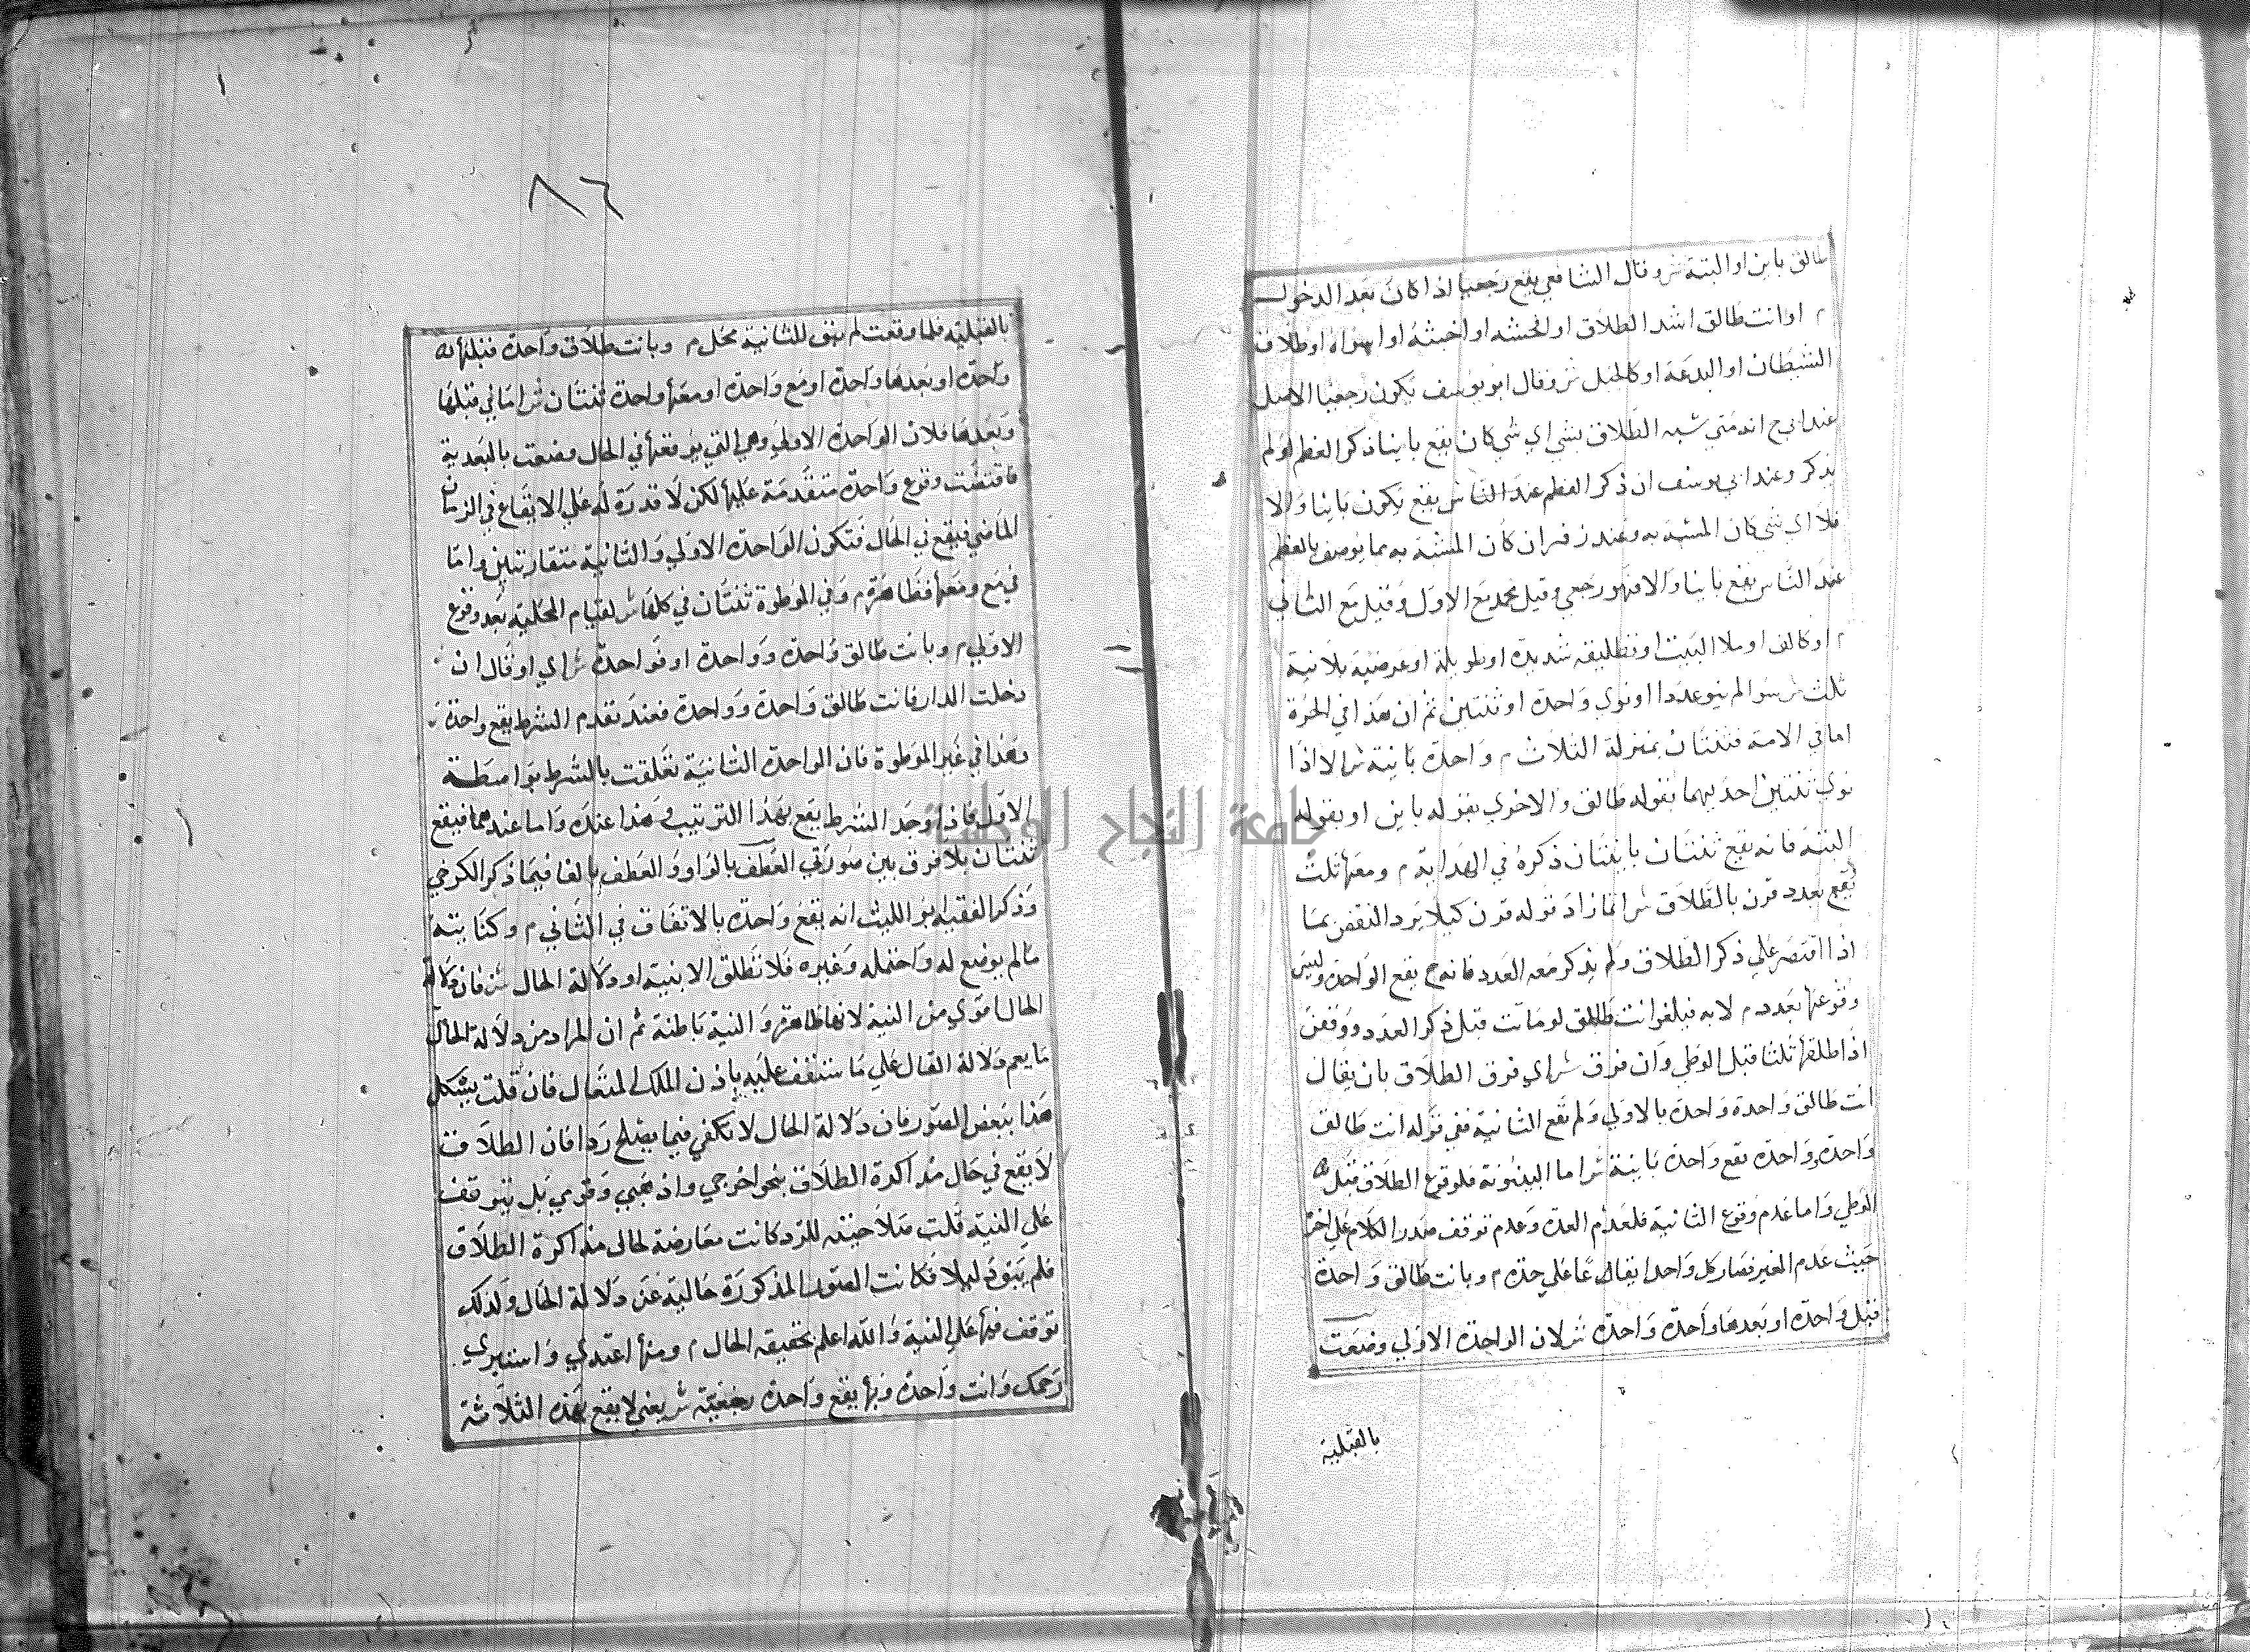 طالق باين او البتة ش وقال الشافعي يقع رجعيا اذا كان بعد الدخول
م او انت طالق اشد الطلاق او افحشه او اخبثه او اسواه او طلاق
الشيطان او البدعة او كالجبل ش وقال ابو يوسف يكون رجعيا الاصل
عند ابي ح انه متي شبه الطلاق بشي اي شي كان يقع باينا ذكر العظم او لم
يذكر وعند ابي يوسف ان ذكر العظم عند الناس يقع يكون باينا والا
فلا اي شي كان المشبه به وعند زفر ان كان المشبه به مما يوصف بالعظم
عند الناس يقع باينا والا فهو رجعي وقيل محمد مع الاول وقيل مع الثاني
م او كالف او ملا البيت او تطليقه شديدة او طويلة او عرضية بلا نية
ثلث ش سوا لم ينو عددا او نوي واحدة او ثنتين ثم ان هذا في الحرة
اما في الامة فثنتان بمنزلة الثلاث م واحدة باينة ش الا اذا
نوي ثنتين احديهما بقوله طالق والاخري بقوله باين او بقوله
البتة فانه يقع ثنتان باينتان ذكره في الهداية م ومعها ثلث
يقع بعدد قرن بالطلاق ش انما زاد قوله قرن كيلا يرد النقض بما
اذا اقتصر علي ذكر الطلاق ولم يذكر معه العدد فانه ح يقع الواحدة وليس
وقوعها بعدد م لا به فيلغوا انت طالق لو ماتت قبل ذكر العدد ووقعن
اذا طلقها ثلثا قبل الوطي وان فرق ش اي فرق الطلاق بان يقال
انت طالق واحدة واحدة بالاولي ولم تقع الثانية ففي قوله انت طالق
واحدة وواحدة تقع واحدة باينة ش اما البينونة فلوقوع الطلاق قبل
الوطي واما عدم وقوع الثانية فلعدم العدة وعدم توقف صدر الكلام علي اخره
حيث عدم الغير فصار كل واحد ايقاعا علي حدة م وبانت طالق واحدة
قبل واحدة او بعدها واحدة واحدة ش لان الواحدة الاولي وصفت
بالقبلية
٨٦
بالقبلية فلما وقعت لم يبق للثانية محل م وبانت طلاق واحدة قبلها
واحدة او بعدها واحدة او مع واحدة او معها واحدة ثنتان ش اما في قبلها
وبعدها فلان الواحدة الاولي وهي التي يوقعها في الحال وصفت بالبعدية
فاقتضت وقوع واحدة متقدمة عليها لكن لا قدرة له علي الايقاع في الزمان
الماضي فيقع في الحال فتكون الواحدة الاولي والثانية متقارنتين واما
في مع ومعها فظاهرة م وفي الموطوة ثنتان في كلها ش لقيام المحلية بعد وقوع
الاولي م وبانت طالق واحدة وواحدة او فواحدة ش اي او قال ان
دخلت الدار فانت طالق واحدة وواحدة فعند تقدم الشرط يقع واحدة
وهذا في غير الموطوة فان الواحدة الثانية تعلقت بالشرط بواسطة
الاول فاذا وجد الشرط يقع بهذا الترتيب وهذا عنده واما عندهما فيقع
ثنتان بلا فرق بين صورتي العطف بالواو والعطف بالفا فيما ذكر الكرخي
وذكر الفقيه ابو الليث انه يقع واحدة بالاتفاق في الثاني م وكنايته
مالم يوضع له واحتمله وغيره فلا تطلق الا بنية او دلالة الحال ش فان دلالة
الحال اقوي من النية لانها ظاهرة والنية باطنة ثم ان المراد من دلالة الحال
ما يعم دلالة القال علي ما ستقف عليه باذن الملك المتعال فان قلت يشكل
هذا ببعض الصور فان دلالة الحال لا تكفي فيما يصلح ردا فان الطلاق
لا يقع في حال مذاكرة الطلاق بنحو اخرجي واذهبي وقومي بل يتوقف
علي النية قلت صلاحيته للرد كانت معارضة لحال مذاكرة الطلاق
فلم يبق دليلا فكانت الصور المذكورة خالية عن دلالة الحال ولذلك
توقف فيها علي النية والله اعلم بحقيقه الحال م ومنها اعتدي واستبري
رحمك وانت واحدة وبها يقع واحدة رجعية ش يعني لا يقع بهذه الثلاثة
جامعة النجاح الوطنية